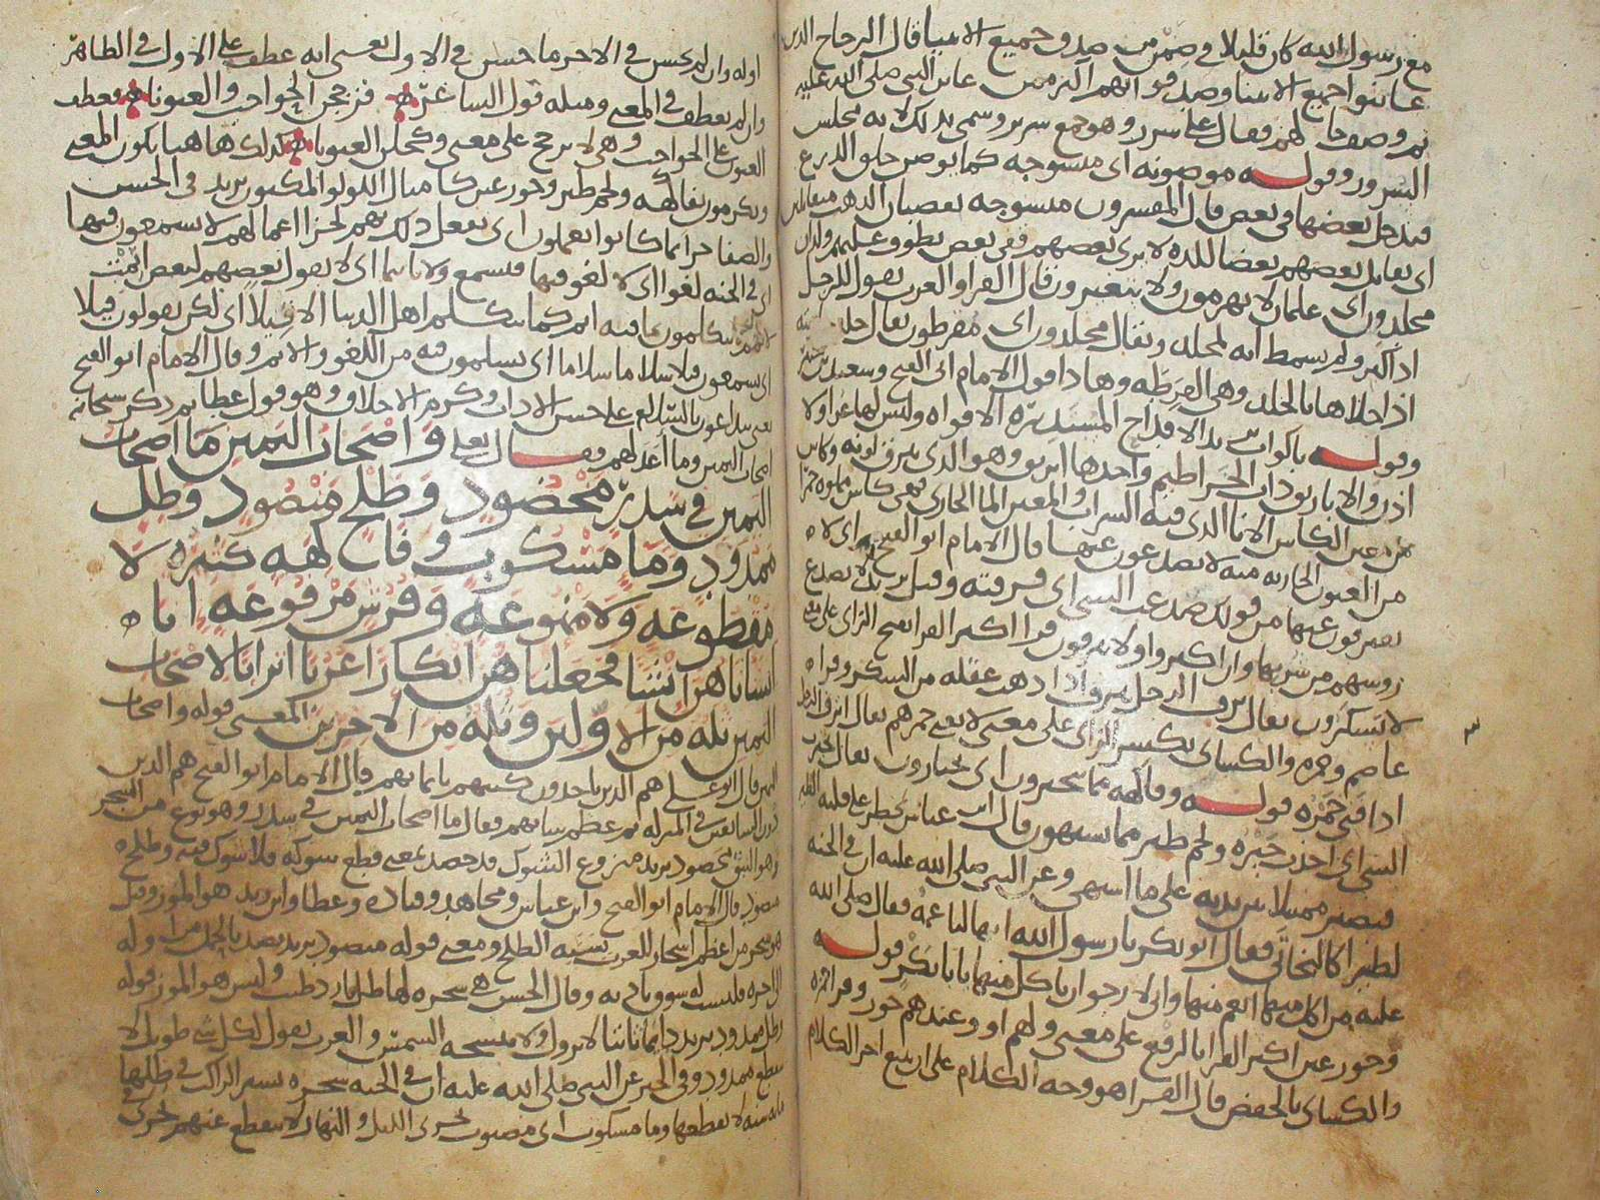 مع رسول الله كان قليلا وصدق جميع الانبيا قال الزجاج الذين
عاينوا جميع الانبيا وصدقوا بهم اكثر ممن عاين النبي صلى الله عليه
ثم وصف حالهم فقال على سرر وهو جمع سرير وسمي بذلك لانه مجلس
السرور وقوله موضونه اى منسوجه كما يوضن حلق الدرع
فيدخل بعضها فى بعض قال المفسرون منسوجه بقضبان الذهب متقابلين
اى يقابل بعضهم بعضا لا يرى بعضهم قفى بعض يطوف عليهم ولدان
مخلدون اى غلمان لا يهرمون ولا يتغيرون قال الفرا والعرب يقول للرجل
اذا كبر ولم يشمط انه لمخلد ويقال مخلدون اى مقرطون يقال خلد
اذا حلاها بالخلد وهى القرطه وهذا قول الامام ابى الفتح وسعيد بن
وقوله باكواب الاقداح المستديره الافواه وليس لها عرا ولا
اذن والاباريق ذات الخراطيم واحدها ابريق وهو الذى يبرق لونه وكاس
من معين الكاس الانا الذى فيه الشراب والمعين الما الجارى يعنى كاس مملوه خمرا
من العيون الجاريه لا يصدعون عنها قال الامام ابو الفتح اى لا
يتفرقون عنها من قولك صدعت الشى اى فرقته وقيل لا يصدع
رووسهم من شربها وان اكثروا ولا ينزفون قرا اكثر القرا بفتح الزاى على معنى
لا يسكرون يقال نزف الرجل ينزف اذا ذهب عقله من السكر وقراه
عاصم وحمزه والكساى بكسر الزاى على معنى لا يفنى خمرهم يقال انزف الرجل
اذا فنى خمره قوله وفاكهه مما يتخيرون اى يختارون يقال تخيرت
الشى اى اخذت خيره ولحم طير مما يشتهون قال ابن عباس يخطر على قلبه الطير
فيصير ممثلا بين يديه على ما اشتهى وعن النبى صلى الله عليه ان فى الجنه
لطيرا كالبخاتى فقال ابو بكر يا رسول الله انها لناعمه فقال صلى الله
عليه من اكل منها انعم منها وانى لارجوا ان تاكل منها يابا بكر قوله
وحور عين اكثر القرا بالرفع على معنى ولهم او وعندهم حور وقرا حمزه
والكساى بالخفض قال الفرا هو وجه الكلام على ان يتبع اخر الكلام
اوله وان لم يحسن فى الاخر ما حسن فى الاول يعنى انه عطف على الاول فى الظاهر
وان لم يعطف فى المعنى ومثله قول الشاعر فزججن الحواجب والعيونا فعطف
العيون على الحواجب وهى لا تزجج على معنى وكحلن العيونا كذلك هاهنا يكون المعنى
ويكرمون بفاكهه ولحم طير وحور عين كامثال اللولو المكنون يريد فى الحسن
والصفا جزا بما كانوا يعملون اى يفعل ذلك بهم لجزا اعمالهم لا يسمعون فيها
اى فى الجنه لغوا اى لا لغو فيها فيسمع ولا تاثيما اى لا يقول بعضهم لبعض اثمت
لانهم لا يتكلمون بما فيه اثم كما يتكلم اهل الدنيا الا قيلا اى لكن يقولون قيلا
اى يسمعون قيلا سلاما سلاما اى يسلمون فيه من اللغو والاثم وقال الامام ابو الفتح
يعنى يتداعون بالسلام على حسن الاداب وكرم الاخلاق وهو قول عطا ثم ذكر سبحانه
اصحاب اليمين وما اعد لهم فقال تعلى واصحاب اليمين ما اصحاب
اليمين فى سدر مخضود وطلح منضود وظل
ممدود وما مسكوب وفاكهه كثيره لا
مقطوعه ولا ممنوعه وفرش مرفوعه انا
انشاناهن انشا فجعلناهن ابكارا عربا اترابا لاصحاب
اليمين ثله من الاولين وثله من الاخرين المعنى قوله واصحاب
اليمين قال ابو على هم الذين ياخذون كتبهم بايمانهم قال الامام ابو الفتح هم الذين
دون السابقين فى المنزله ثم عظم شانهم فقال ما اصحاب اليمين فى سدر وهو نوع من الشجر
وهو النبق مخضود يريد منزوع الشوك قد خضد بمعنى قطع شوكه فلا شوك فيه وطلح
منضود قال الامام ابو الفتح وابن عباس ومجاهد وقتاده وعطا وابن زيد هو الموز وقيل
هو شجر من اعظم اشجار العرب تسميه الطلح ومعنى قوله منضود يريد نضد بالحمل من اوله
الى اخره فليست له سوق بارزه وقال الحسن هى شجره لها ظل بارد طيب وليس هو الموز قوله
وظل ممدود يريد دايما ثابتا لا يزول ولا تنسخه الشمس والعرب يقول لكل شى طويل لا
ينقطع ممدود وفى الخبر عن النبى صلى الله عليه ان فى الجنه شجره يسير الراكب فى ظلها
مايه سنه لا يقطعها وما مسكوب اى مصبوب يجرى الليل والنهار لا ينقطع عنهم يجرى فى